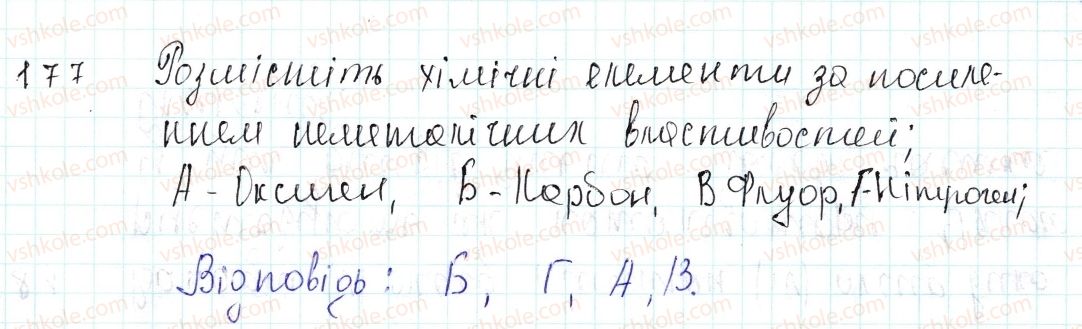 177 Розмістіть хімічні елементи за посиле-
нням неметалічних властивостей;
А - Оксиген, Б - Карбон, В Флуор, Г-Нітроген;
Відповідь: Б, Г, А, В.